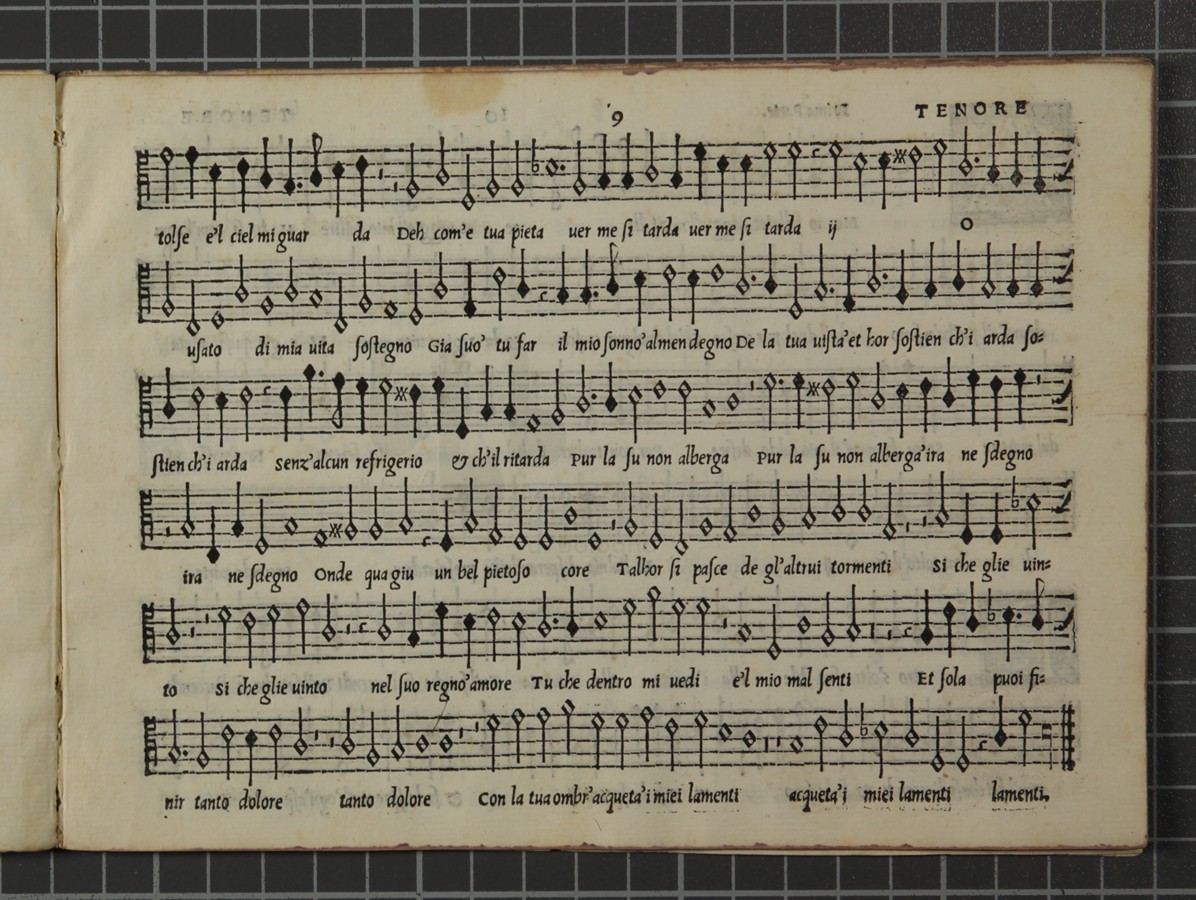 9 TENORE
tolſe e'l ciel mi guar da Deh com'e tua pieta uer me ſi tarda uer me ſi tarda ij O
uſato di mia uita ſoſtegno Gia ſuo' tu far il mio ſonno'almen degno De la tua uiſta'et hor ſoſtien ch'i arda ſo=
ſtien ch'i arda senz'alcun refrigerio & ch'il ritarda Pur la ſu non alberga Pur la ſu non alberga'ira ne ſdegno
ira ne ſdegno Onde qua giu un bel pietoſo core Talhor ſi paſce de gl'altrui tormenti Si che glie uin=
to Si che glie uinto nel ſuo regno'amore Tu che dentro mi uedi e'l mio mal ſenti Et ſola puoi fi=
nir tanto dolore tanto dolore Con la tua ombr'acqueta'i miei lamenti acqueta'i miei lamenti lamenti.